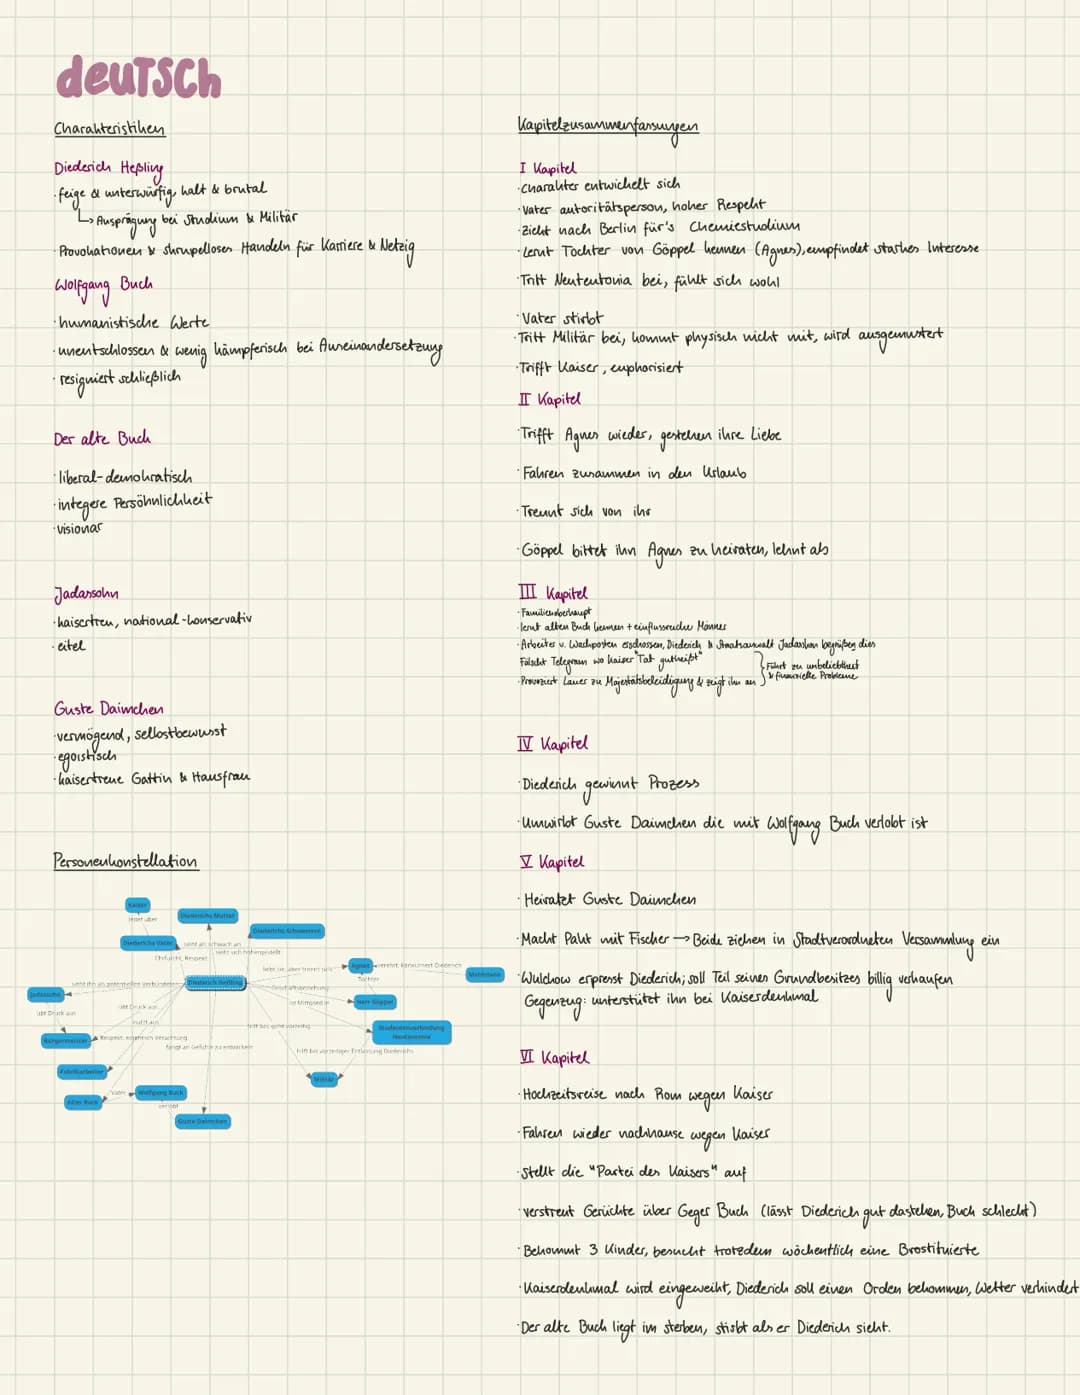 deutsch
Charakteristiken
Diederich Heßling
· feige & unterwürfig, kalt & brutal
↳ Ausprägung bei Studium & Militär
· Provokationen & skrupelloses Handeln für Karriere & Netzig
Wolfgang Buch
· humanistische Werte
· unentschlossen & wenig kämpferisch bei Auseinandersetzung
· resigniert schließlich
Der alte Buch
· liberal-demokratisch
· integere Persöhnlichkeit
· visionär
Jadassohn
· kaisertreu, national-konservativ
· eitel
Guste Daimchen
· vermögend, selbstbewusst
· egoistisch
· kaisertreue Gattin & Hausfrau
Personenkonstellation
Kaiser
leitet über
Diederichs Mutter
Diederichs Schwestern
Diederichs Vater
sieht als schwach an
sieht sich höhergestellt
Ehrfurcht, Respekt
liebt sie, aber trennt sich
Agnes
verehrt, konkurriert Diederich
Mahlmann
Tochter
sieht ihn als potentiellen Verbündeten
Diederich Heßling
Geschäftsbeziehung
Jadassohn
übt Druck aus
ist Mitglied in
Herr Göppel
übt Druck aus
nutzt aus
tritt bei, geht vorzeitig
Studentenverbindung
Neuteutonia
Bürgermeister
Respekt, eigentlich Verachtung
fängt an Gefühle zu entwickeln
hilft bei vorzeitiger Entlassung Diederichs
Fabrikarbeiter
Militär
Vater
Wolfgang Buch
Alter Buck
verlobt
Guste Daimchen
Kapitelzusammenfassungen
I Kapitel
· Charakter entwickelt sich
· Vater autoritätsperson, hoher Respekt
· Zieht nach Berlin für's Chemiestudium
· Lernt Tochter von Göppel kennen (Agnes), empfindet starkes Interesse
· Tritt Neuteutonia bei, fühlt sich wohl
· Vater stirbt
· Tritt Militär bei, kommt physisch nicht mit, wird ausgemustert
· Trifft Kaiser, euphorisiert
II Kapitel
· Trifft Agnes wieder, gestehen ihre Liebe
· Fahren zusammen in den Urlaub
· Trennt sich von ihr
· Göppel bittet ihn Agnes zu heiraten, lehnt ab
III Kapitel
· Familienoberhaupt
· lernt alten Buck kennen + einflussreiche Männer
· Arbeiter v. Wachposten erschossen, Diederich & Staatsanwalt Jadassohn begrüßen dies
Fälscht Telegram wo Kaiser "Tat gutheißt"
· Provoziert Lauer zu Majestätsbeleidigung & zeigt ihn an
Führt zu unbeliebtheit
& finanzielle Probleme
IV Kapitel
· Diederich gewinnt Prozess
· Umwirbt Guste Daimchen die mit Wolfgang Buch verlobt ist
V Kapitel
· Heiratet Guste Daimchen
· Macht Pakt mit Fischer → Beide ziehen in Stadtverordneten Versammlung ein
· Wulckow erpresst Diederich; soll Teil seines Grundbesitzes billig verkaufen
Gegenzug: unterstützt ihn bei Kaiserdenkmal
VI Kapitel
· Hochzeitsreise nach Rom wegen Kaiser
· Fahren wieder nachhause wegen Kaiser
· Stellt die "Partei des Kaisers" auf
· verstreut Gerüchte über Geger Buch (lässt Diederich gut dastehen, Buch schlecht)
· Bekommt 3 Kinder, besucht trotzdem wöchentlich eine Brostituierte
· Kaiserdenkmal wird eingeweiht, Diederich soll einen Orden bekommen, Wetter verhindert
· Der alte Buch liegt im sterben, stirbt als er Diederich sieht.